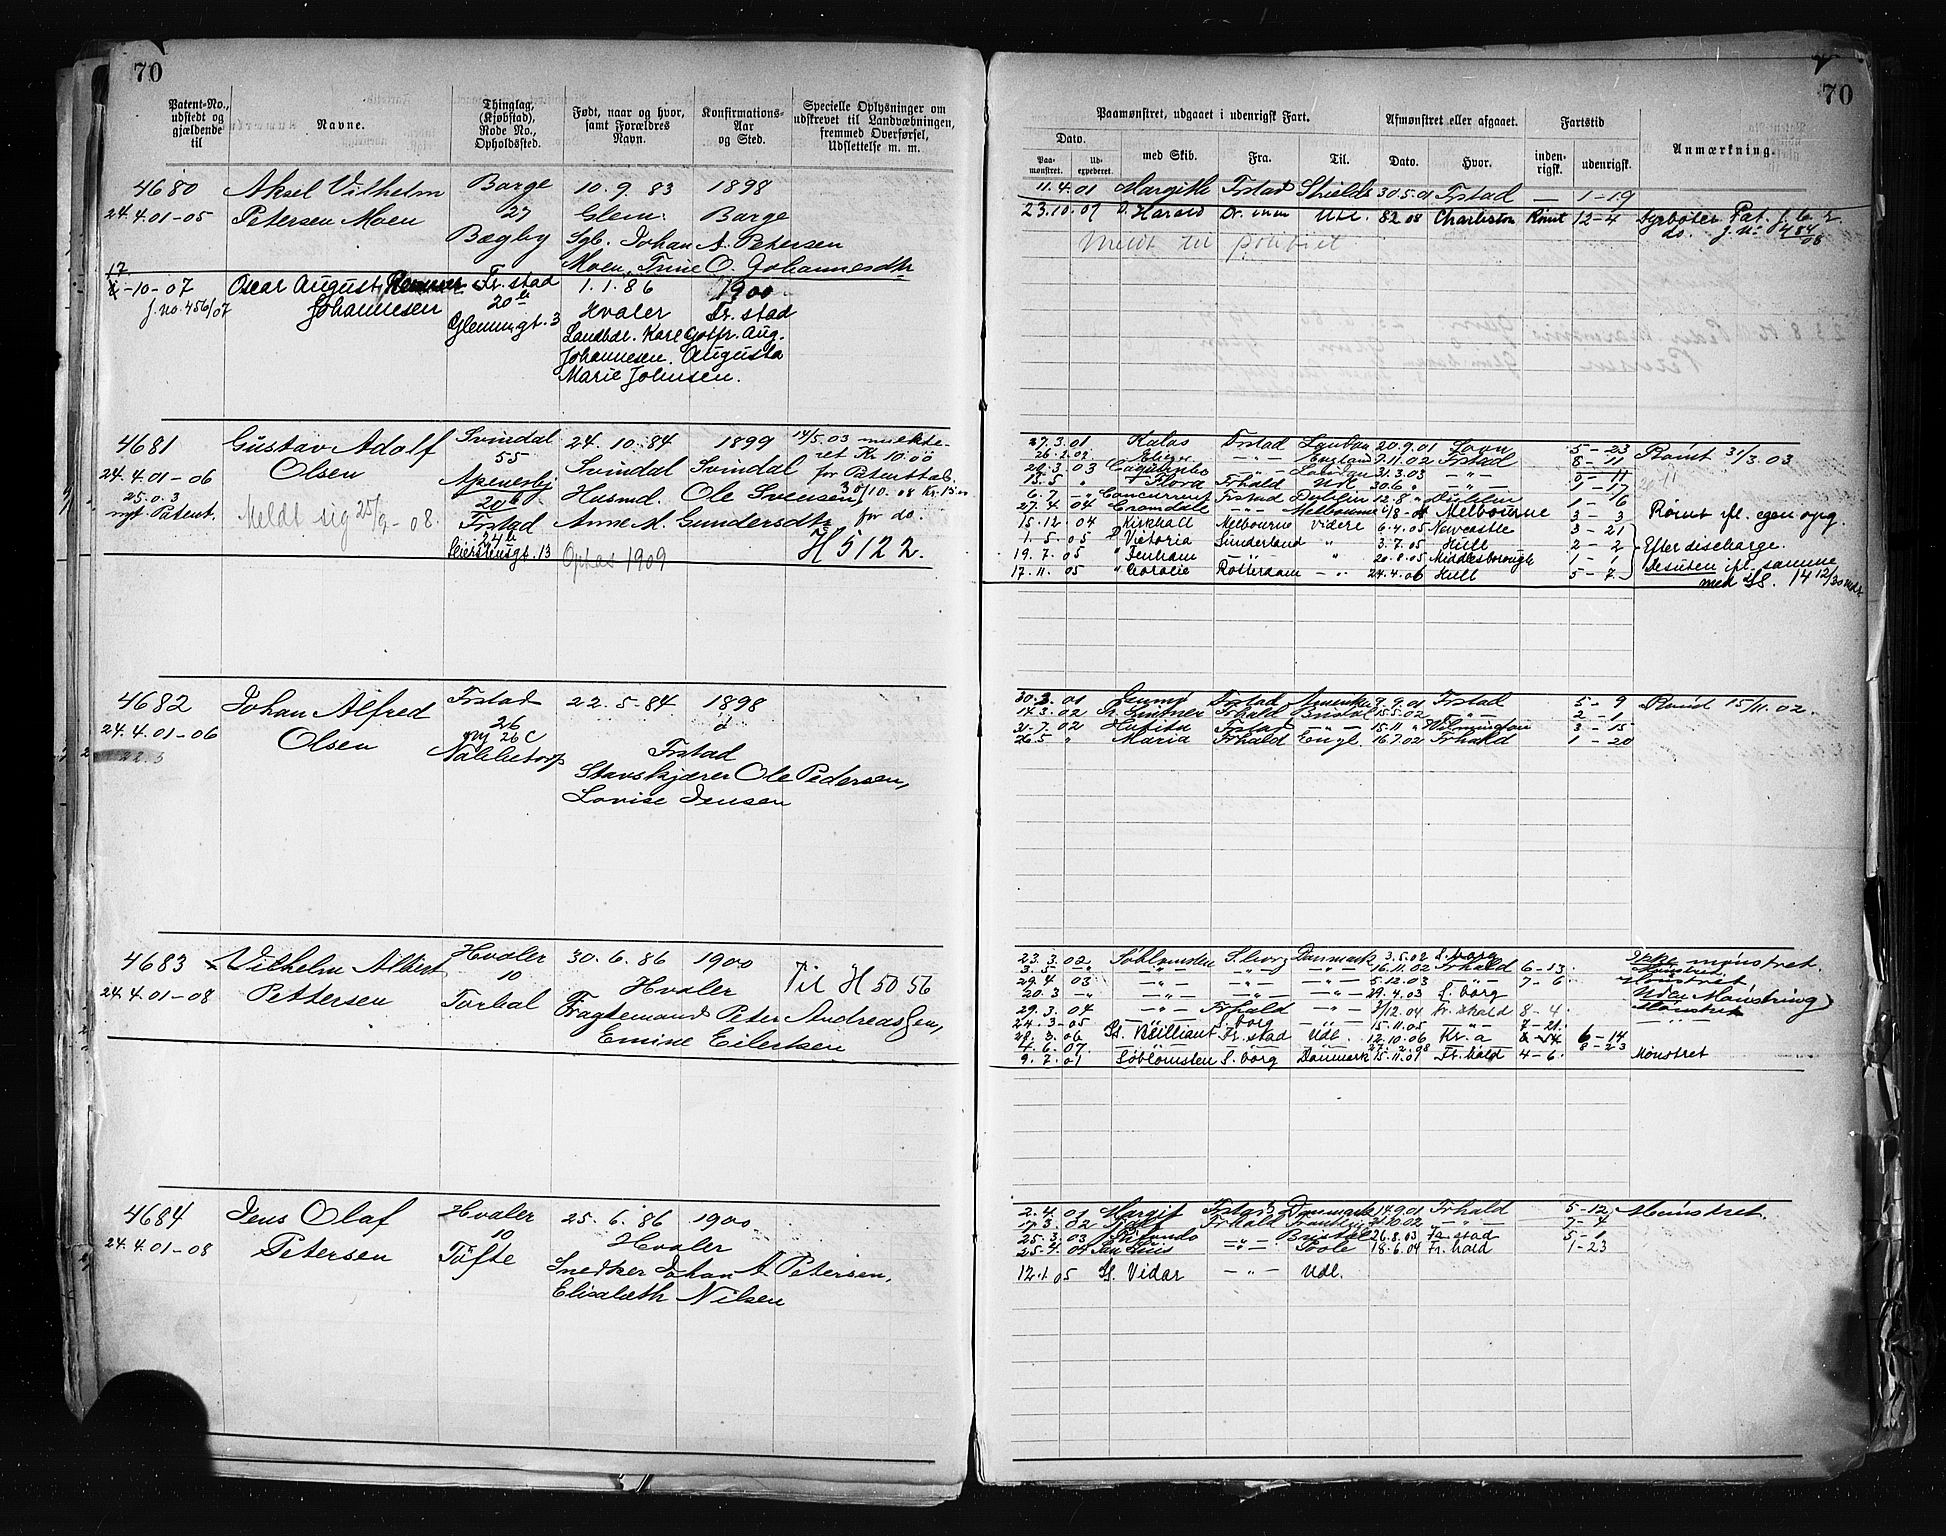 70
Patent-No., udstedt og gjældende til
Navne.
Thinglag, (Kjøbstad), Rode No., Opholdssted.
Født, naar og hvor, samt Forældres Navn.
Konfirmations-Aar og Sted.
Specielle Oplysninger om udskrevet til Landvæbningen, fremmed Overførsel, Udslettelse m. m.
4680 Aksel Vilhelm Borge 10.9.83 1898
24.4.01-05 Petersen Moen 27 Glem. Borge
Bøgby Sgb. Johan A. Petersen
Moen, Trine O. Johannesdtr
17
-10-07 Oscar August Fr.stad 1.1.86 1900
j.no. 456/07 Johannesen 20 b Hvaler Fr.stad
Glemmgt. 3 Landbær. Karl Gotfr. Aug.
Johannesen. Augusta
Marie Johnsen.
4681 Gustav Adolf Svindal 24.10.84 1899 14/5.03 mulkte-
24.4.01-06 Olsen 55 Svindal Svindal ret Kr 10.00
Apenesbj Husmd. Ole Svensen, for Patenttab.
25.0.3 20 b 30/10.08 Kr. 15.00
nyt Patent. Meldt sig 25/9-08. Frstad Anne M. Gundersdtr for do.
24 b H 5122.
gt. 13 Optas 1909
4682 Johan Alfred Frstad 22.5.84 1898
24.4.01-06 Olsen 26
22.5 ny 26 C Frstad
Nabbetorp Stavskjærer Ole Pedersen,
Lovise Jensen
4683 Vilhelm Albert Hvaler 30.6.86 1900 Til H 5056
24.4.01-08 Pettersen 10 Hvaler
Torbal Fragtemand Peter Andreassen,
Emine Eilertsen
4684 Jens Olaf Hvaler 25.6.86 1900
24.4.01-08 Petersen 10 Hvaler
Tøfte Snedker Johan A. Petersen,
Elisabeth Nilsen
70
Paamønstret, udgaaet i udenrigsk Fart.
Afmønstret eller afgaaet.
Fartstid
Anmærkning.
Dato.
Paa-mønstret.
Ud-expederet.
med Skib.
Fra.
Til.
Dato.
Hvor.
inden-rigsk.
udenrigsk.
11.4.01 Margith Frstad Shields 30.5.01 Frstad — 1-19
23.10.07 D. Harald Dr.mm Udl. 8.2.08 Charleston Rømt 12-4 Fyrbøter Pat. f. 6. 2.
do. j. no 484/08
Meldt til politiet
27.3.01 Kalos Frstad London 20.9.01 Savn 5-23 Rømt 31/3.03
26.2.02 Eliezer —"— England 7.11.02 Frstad 8-11
28.3.03 —"— London 31.3.03 —"— 0-11
15.5 " Flora Frhald Udl 30.6 " —"— 1-17
6.7 —"— Concurrent Frstad Dublin 12.8 " Dublin 1-6
27.4 04 Cromdale —"— Melbourne Melbourne 3 3 Rømt ifl. egen opg.
15.12.04 Kirkhall Melbourne Videre 6.4.05 Newcastle 3-21
1.5.05 D Victoria Sunderland " 3.7.05 Hull 2-2 Efter discharge.
19.7.05 " Denham —"— " 20.8.05 Middlesborough 1-1 Desuten ifl. samme
17.11.05 " Coralie Rotterdam —"— 24.4.06 Hull 5-7 med SS. 14 12/30 mdr.
30.3.01 Frstad Amerika 9.9.01 Frstad 5-9 Rømt 15/11.02.
14.3.02 Frhald Bristol 15.5.02 —"— 2-1
31.7.02 Frstad —"— 15.11 " 3-15
26.5 " Maria Frhald Engl. 16.7.02 Frhald 1-20
23.3.02 Søblomsten S.borg Danmark 3.5.02 S.borg Ikke mønstret.
3.5 —"— —"— —"— —"— 16.11.02 Frhald 6-13 Mønstret.
29.4 03 —"— —"— —"— 5.12.03 —"— 7-6 Mønstret
20.3 —"— —"— —"— —"— 29.4.03 S.borg Uden Mønstring
29.3.04 —"— Frhald —"— 3/12.04 Fr.shald 8-4 Mønstret
24.3-05 —"— S.borg —"— 15.11.05 —"— 7-21 —"—
28.3.06 Sk. Brilliant Fr.stad Udl. 12.10.06 Kr.a 6-14
4.6.07 —"— —"— —"— 27.2.08 8-23
9.2.01 Søblomsten S.borg Danmark 15.11.01 Fr.hald 4-6 Mønstret
2.4.01 Margit Frstad Danmark 14.9.01 Frhald 5-12 Mønstret.
17.3.02 Fjalf Frhald 21.10.02 —"— 7-4
25.3.03 —"— Bristol 26.8.03 Fr.stad 5-1
25.4.04 San Luis —"— Poole 18.6.04 Fr.hald 1-23
12.1.05 S. Vidar —"— Udl.